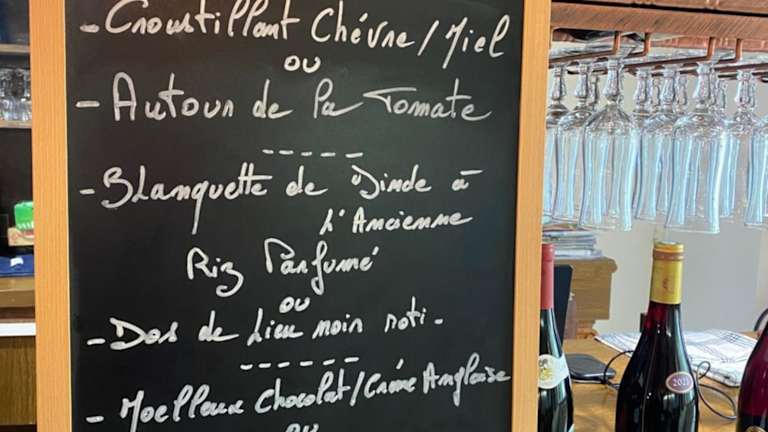 - Croustillant Chèvre/Miel
ou
- Autour de la Tomate
-----
- Blanquette de Dinde à
L'Ancienne
Riz Parfumé
ou
- Dos de Lieu noir roti -
------
- Moelleux Chocolat/Crème Anglaise
ou
2021